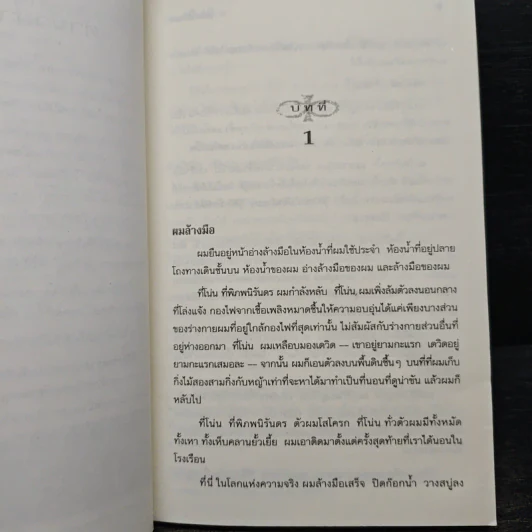 บทที่
1
ผมล้างมือ
ผมยืนอยู่หน้าอ่างล้างมือในห้องน้ำที่ผมใช้ประจำ ห้องน้ำที่อยู่ปลาย
โถงทางเดินชั้นบน ห้องน้ำของผม อ่างล้างมือของผม และล้างมือของผม
ที่โน่น ที่พิภพนิรันดร ผมกำลังหลับ ที่โน่น ผมเพิ่งล้มตัวลงนอนกลาง
ที่โล่งแจ้ง กองไฟจากเชื้อเพลิงหมาดชื้นให้ความอบอุ่นได้แค่เพียงบางส่วน
ของร่างกายผมที่อยู่ใกล้กองไฟที่สุดเท่านั้น ไม่สัมผัสกับร่างกายส่วนอื่นที่
อยู่ห่างออกมา ที่โน่น ผมเหลือบมองเดวิด — เขาอยู่ยามกะแรก เดวิดอยู่
ยามกะแรกเสมอละ — จากนั้น ผมก็เอนตัวลงบนพื้นดินชื้นๆ บนที่ที่ผมเก็บ
กิ่งไม้สองสามกิ่งกับหญ้าเท่าที่จะหาได้มาทำเป็นที่นอนที่ดูน่าขัน แล้วผมก็
หลับไป
ที่โน่น ที่พิภพนิรันดร ตัวผมโสโครก ที่โน่น ทั่วตัวผมมีทั้งหมัด
ทั้งเหา ทั้งเห็บคลานยั้วเยี้ย ผมเอาติดมาตั้งแต่ครั้งสุดท้ายที่เราได้นอนใน
โรงเรือน
ที่นี่ ในโลกแห่งความจริง ผมล้างมือเสร็จ ปิดก๊อกน้ำ วางสบู่ลง